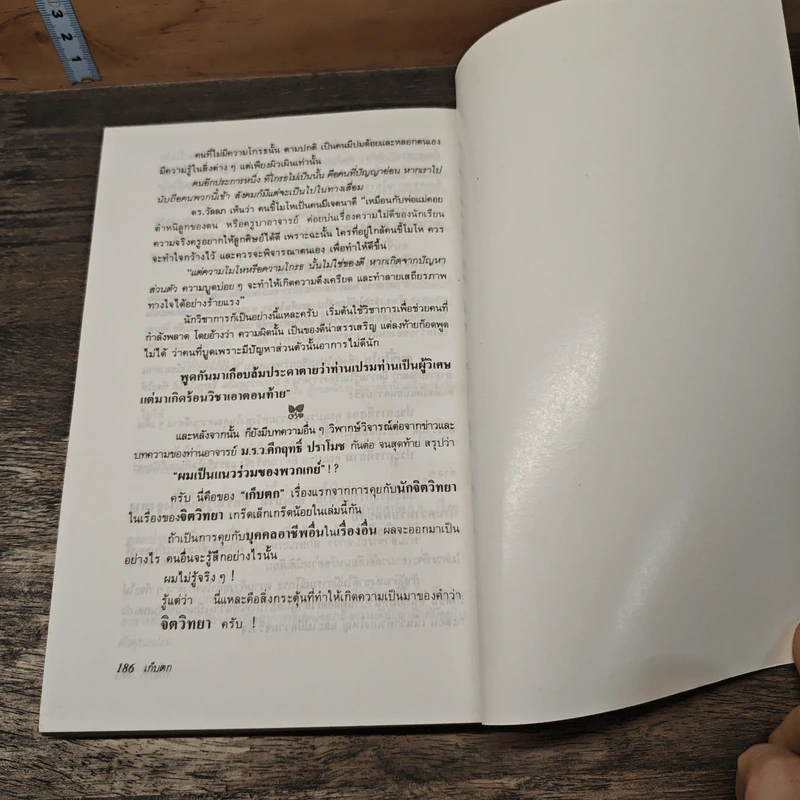 3
2
1
คนที่ไม่มีความโกรธนั้น ตามปกติ เป็นคนมีปมด้อยและหลอกตนเอง
มีความรู้ในสิ่งต่าง ๆ แต่เพียงผิวเผินเท่านั้น
คนอีกประการหนึ่ง ที่โกรธไม่เป็นนั้น คือคนที่ปัญญาอ่อน หากเราไป
นับถือคนพวกนี้เข้า สังคมก็มีแต่จะเป็นไปในทางเสื่อม
ดร.วัลลภ เห็นว่า คนขี้โมโหเป็นคนมีเจตนาดี "เหมือนกับพ่อแม่คอย
ตำหนิลูกของตน หรือครูบาอาจารย์ ค่อยบ่นเรื่องความไม่ดีของนักเรียน
ความจริงครูอยากให้ลูกศิษย์ได้ดี เพราะฉะนั้น ใครที่อยู่ใกล้คนขี้โมโห ควร
จะทำใจกว้างไว้ และควรจะพิจารณาตนเอง เพื่อทำให้ดีขึ้น
"แต่ความโมโหหรือความโกรธ นั้นไม่ใช่ของดี หากเกิดจากปัญหา
ส่วนตัว ความบูดบ่อย ๆ จะทำให้เกิดความตึงเครียด และทำลายเสถียรภาพ
ทางใจได้อย่างร้ายแรง"
นักวิชาการก็เป็นอย่างนี้แหละครับ เริ่มต้นใช้วิชาการเพื่อช่วยคนที่
กำลังพลาด โดยอ้างว่า ความผิดนั้น เป็นของดีน่าสรรเสริญ แต่ลงท้ายก็อดพูด
ไม่ได้ ว่าคนที่บูดเพราะมีปัญหาส่วนตัวนั้นอาการไม่ดีนัก
พูดกันมาเกือบล้มประดาตายว่าท่านเปรมท่านเป็นผู้วิเศษ
แต่มาเกิดร้อนวิชาเอาตอนท้าย"
และหลังจากนั้น ก็ยังมีบทความอื่น ๆ วิพากษ์วิจารณ์ต่อจากข่าวและ
บทความของท่านอาจารย์ ม.ร.ว.คึกฤทธิ์ ปราโมช กันต่อ จนสุดท้าย สรุปว่า
"ผมเป็นแนวร่วมของพวกเกย์" !?
ครับ นี่คือของ "เก็บตก" เรื่องแรกจากการคุยกับนักจิตวิทยา
ในเรื่องของจิตวิทยา เกร็ดเล็กเกร็ดน้อยในเล่มนี้กัน
ถ้าเป็นการคุยกับบุคคลอาชีพอื่นในเรื่องอื่น ผลจะออกมาเป็น
อย่างไร คนอื่นจะรู้สึกอย่างไรนั้น
ผมไม่รู้จริง ๆ !
รู้แต่ว่า นี่แหละคือสิ่งกระตุ้นที่ทำให้เกิดความเป็นมาของคำว่า
จิตวิทยา ครับ !
186 เก็บตก